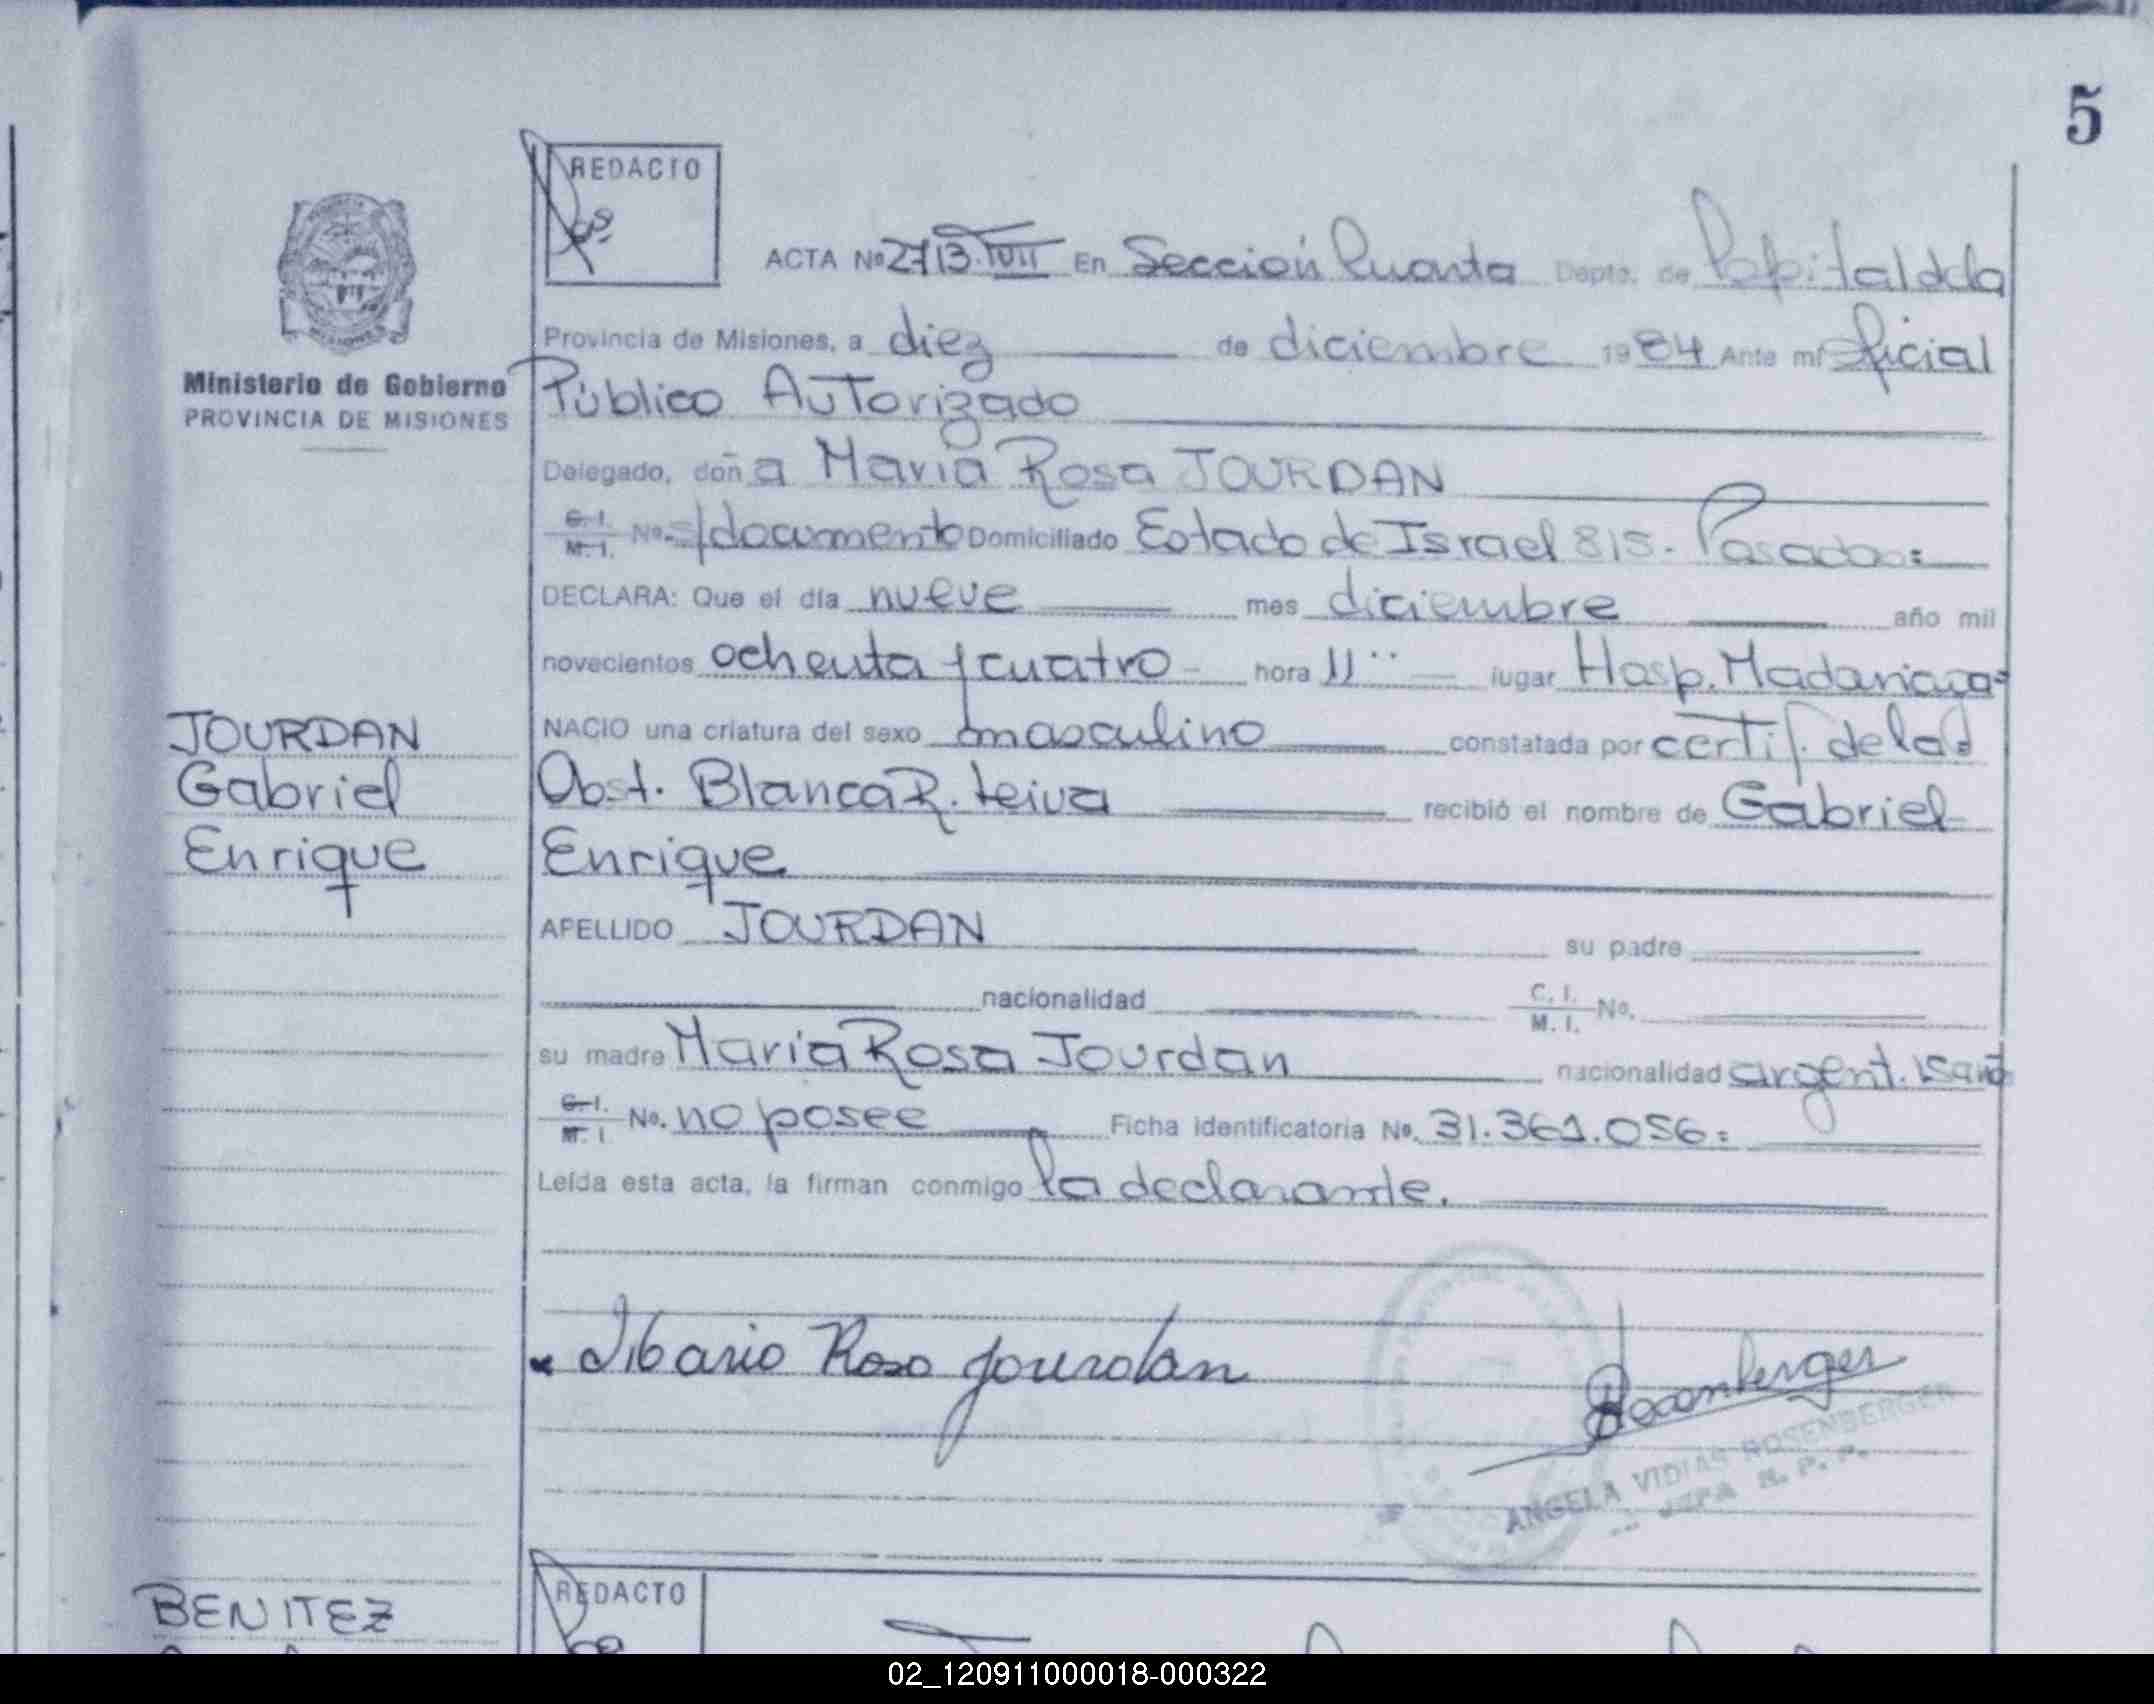 5
REDACTO
ACTA Nº 2713 TVII En Sección Cuarta Depto. de Capital de la
Provincia de Misiones, a diez de diciembre 1984 Ante mí Oficial
Ministerio de Gobierno
PROVINCIA DE MISIONES
Público Autorizado
Delegado, doña María Rosa JOURDAN
C. I. M. I. No. s/documento Domiciliado Estado de Israel 815. Posadas=
DECLARA: Que el día nueve mes diciembre año mil
novecientos ochenta y cuatro hora 11·· lugar Hosp. Madariaga=
JOURDAN
Gabriel
Enrique
NACIO una criatura del sexo masculino constatada por certif. de la=
Obst. Blanca R. Leiva recibió el nombre de Gabriel
Enrique
APELLIDO JOURDAN su padre
nacionalidad C. I. M. I. No.
su madre María Rosa Jourdan nacionalidad argent.
C. I. M. I. No. no posee Ficha identificatoria No. 31.361.056=
Leída esta acta, la firman conmigo la declarante.
María Rosa Jourdan
Rosemberger
ANGELA VIDIAS ROSENBERGER
JEFA R. P. P.
BENITEZ
REDACTO
02_120911000018-000322